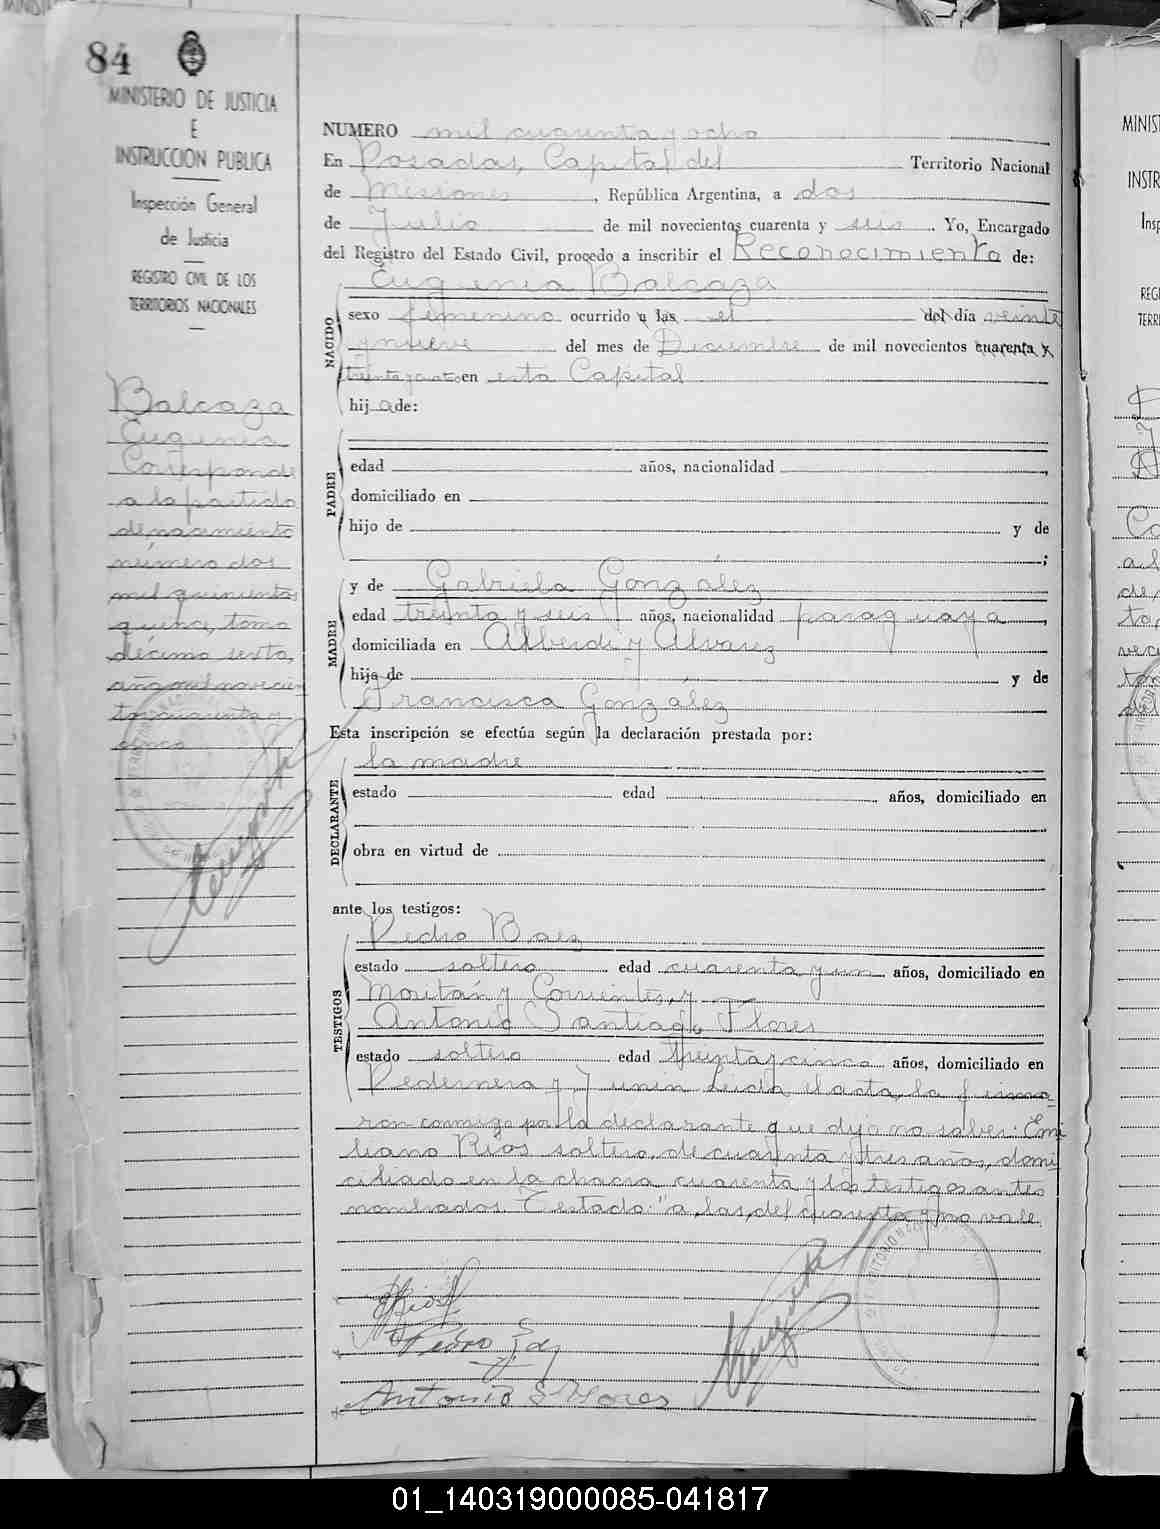 84
MINISTERIO DE JUSTICIA
E
INSTRUCCION PUBLICA
Inspección General
de Justicia
REGISTRO CIVIL DE LOS
TERRITORIOS NACIONALES
Balcaza
Eugenia
Corresponde
a la partida
de nacimiento
número dos
mil quinientos
quince, tomo
décimo sexto,
año mil novecien
tos cuarenta y
NUMERO mil cuarenta y ocho
En Posadas, Capital del Territorio Nacional
de Misiones, República Argentina, a dos
de Julio de mil novecientos cuarenta y seis. Yo, Encargado
del Registro del Estado Civil, procedo a inscribir el Reconocimiento de:
Eugenia Balcaza
NACIDO
sexo femenino ocurrido a las el del día veinte
y nueve del mes de Diciembre de mil novecientos cuarenta y
treinta y en esta Capital
hija de:
PADRE
edad años, nacionalidad
domiciliado en
hijo de y de
;
MADRE
y de Gabriela González
edad treinta y seis años, nacionalidad paraguaya
domiciliada en Alberdi y Alvarez
hija de y de
Francisca González
Esta inscripción se efectúa según la declaración prestada por:
la madre
DECLARANTE
estado edad años, domiciliado en
obra en virtud de
ante los testigos:
TESTIGOS
Pedro Baez
estado soltero edad cuarenta y un años, domiciliado en
Moritán y Corrientes, y
Antonio Santiago Flores
estado soltero edad treinta y cinco años, domiciliado en
Pedernera y Junin Leída el acta, la firma-
ron conmigo por la declarante que dijo no saber: Emi
liano Rios soltero, de cuarenta y tres años, domi
ciliado en la chacra cuarenta y los testigos antes
nombrados. Testado: "a, las, del, cuarenta y, no vale.
Pedro
Antonio S Flores
MINIST
INSTR
Insp
REGI
TERRI
01_140319000085-041817